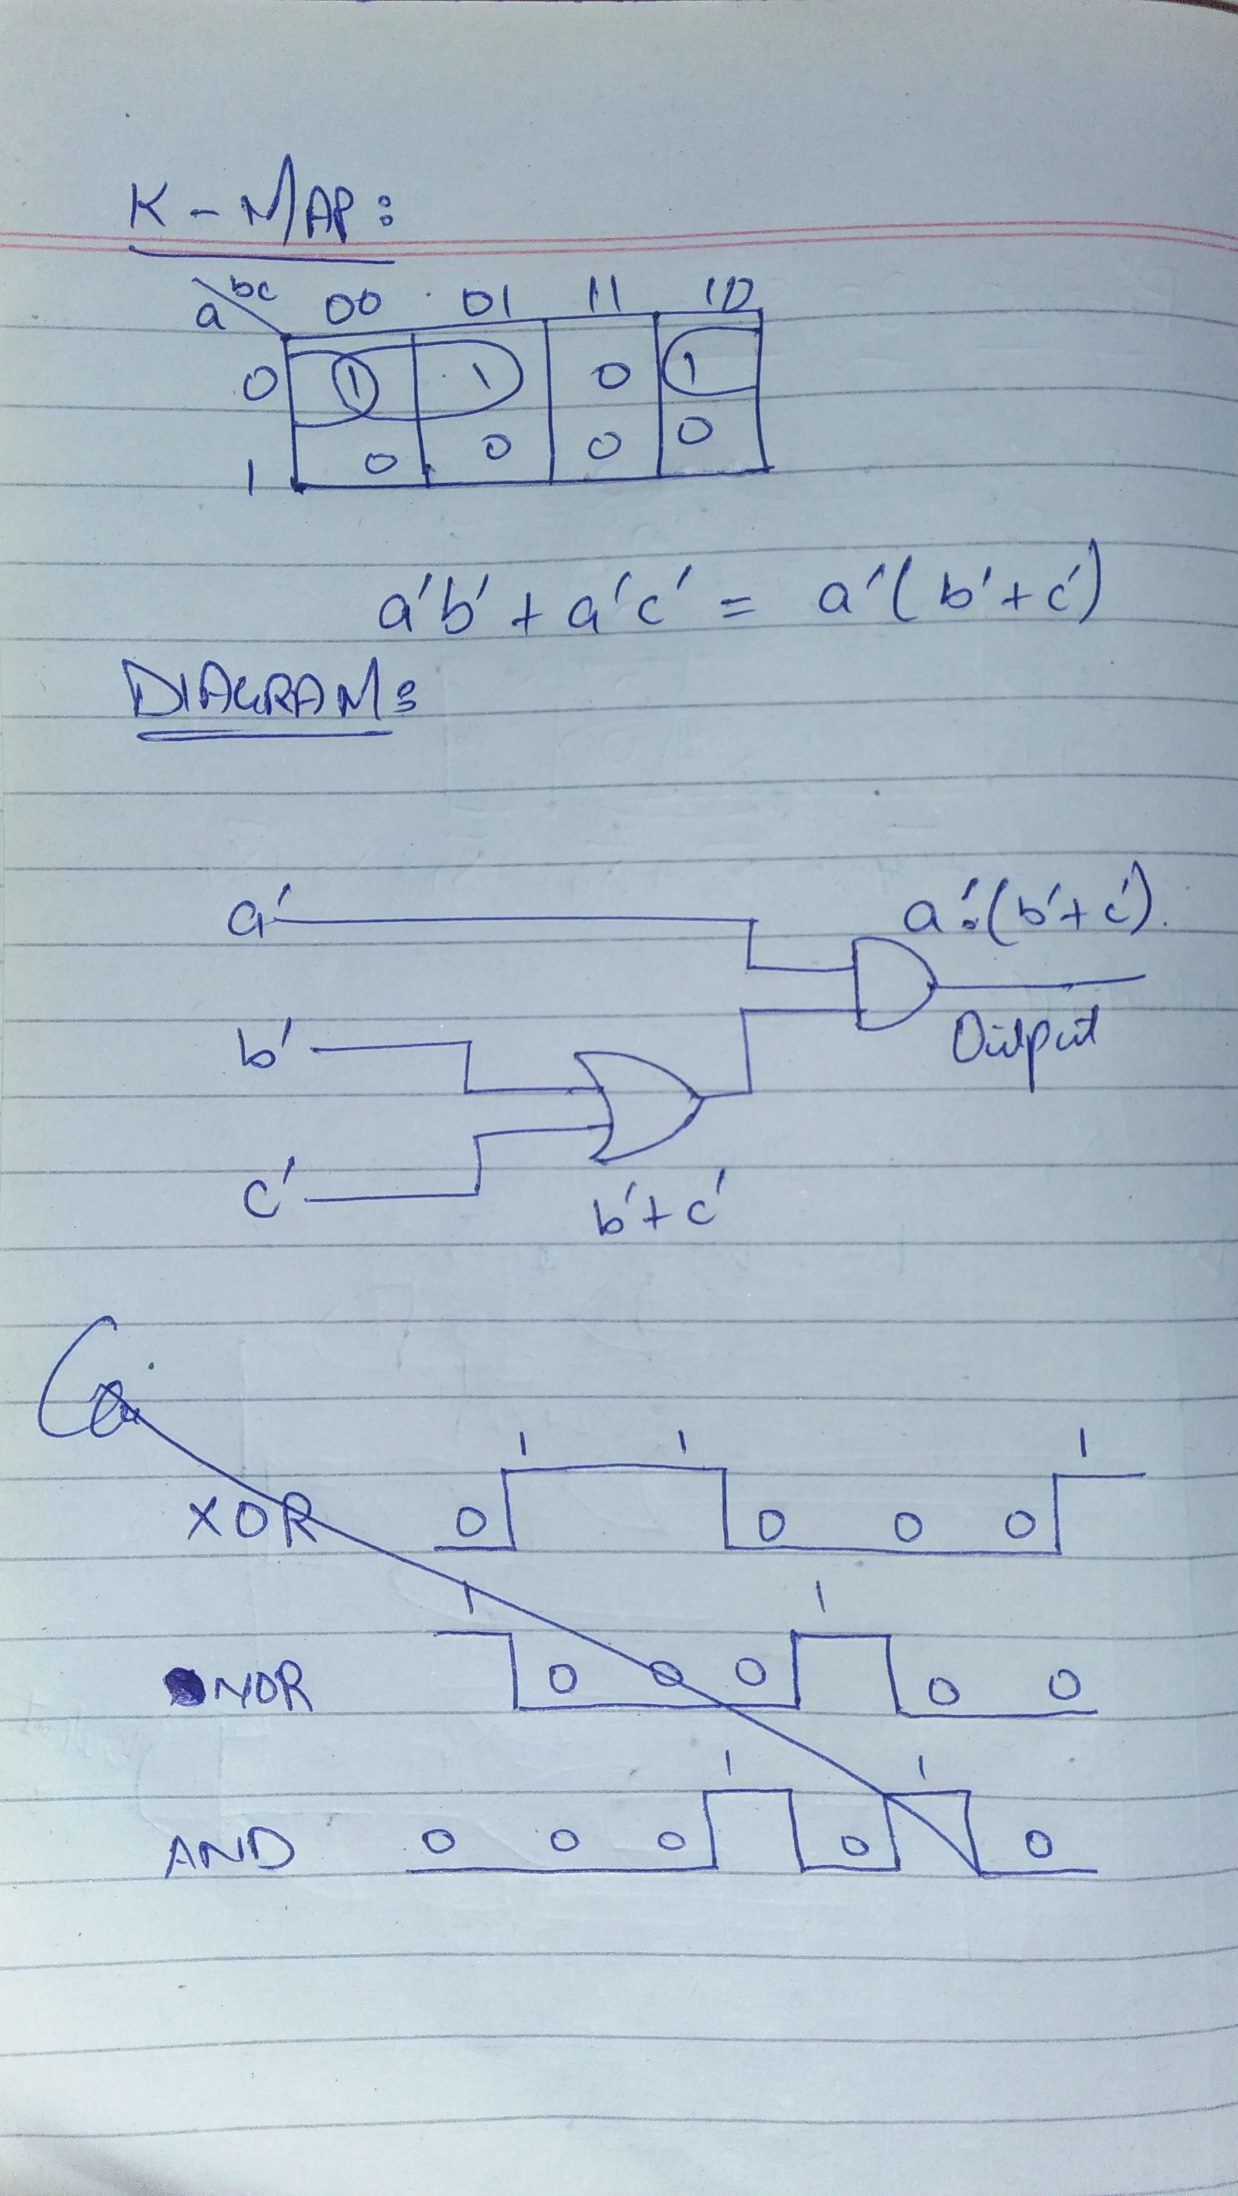 K-MAP:
a bc 00 01 11 10
0 1 1 0 1
1 0 0 0 0
a'b' + a'c' = a'(b'+c')
DIAGRAM:
a'
a'.(b'+c').
b'
Output
c'
b'+c'
a
XOR 0 1 1 0 0 0 1
NOR 1 0 0 0 1 0 0
AND 0 0 0 1 0 1 0